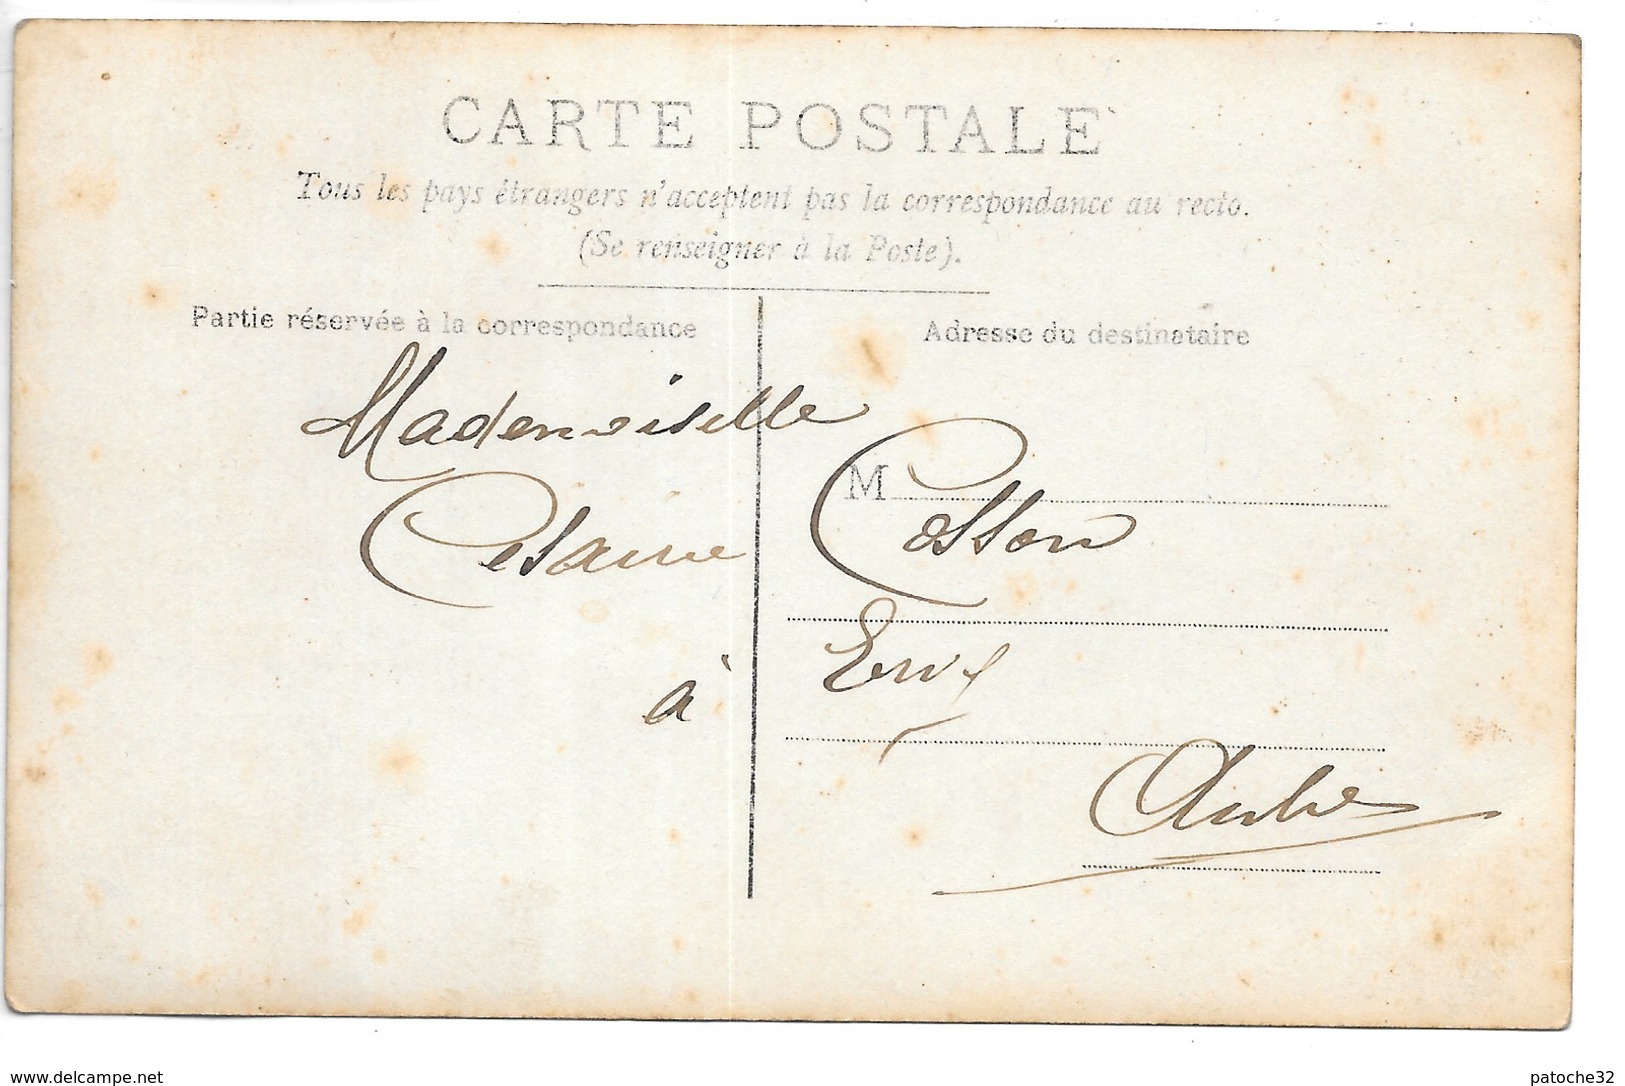 CARTE POSTALE
Tous les pays étrangers n'acceptent pas la correspondance au recto.
(Se renseigner à la Poste).
Partie réservée à la correspondance
Adresse du destinataire
Mademoiselle
M
Cesaire Cosson
à Ervy
Aube
www.delcampe.net
patoche32